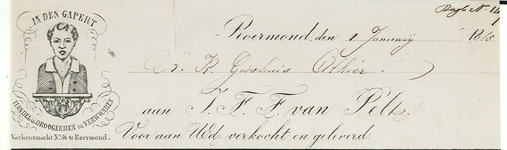 IN DEN GAPERT
HANDEL in DROOGERIJEN en VERFWAREN
Varkensmarkt No. 36 te Roermond.
Roermond, den 1 Januarij 18
R. K. Godshuis Alhier
aan J. F. F. van Pelt.
Voor aan UEd. verkocht en geleverd.